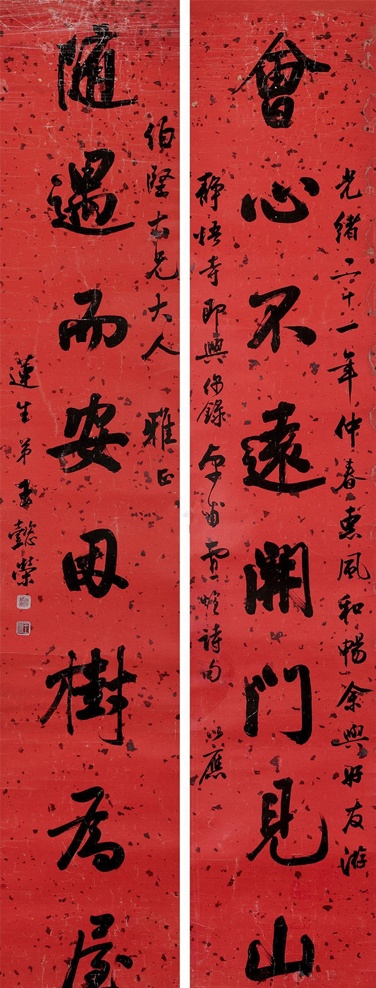 光緒二十一年仲春惠風和暢余與好友游
會心不遠開門見山
靜悟寺即興偶錄詩句以應
伯堅大兄大人雅正
隨遇而安囙樹為屋
蓮生弟王懿榮